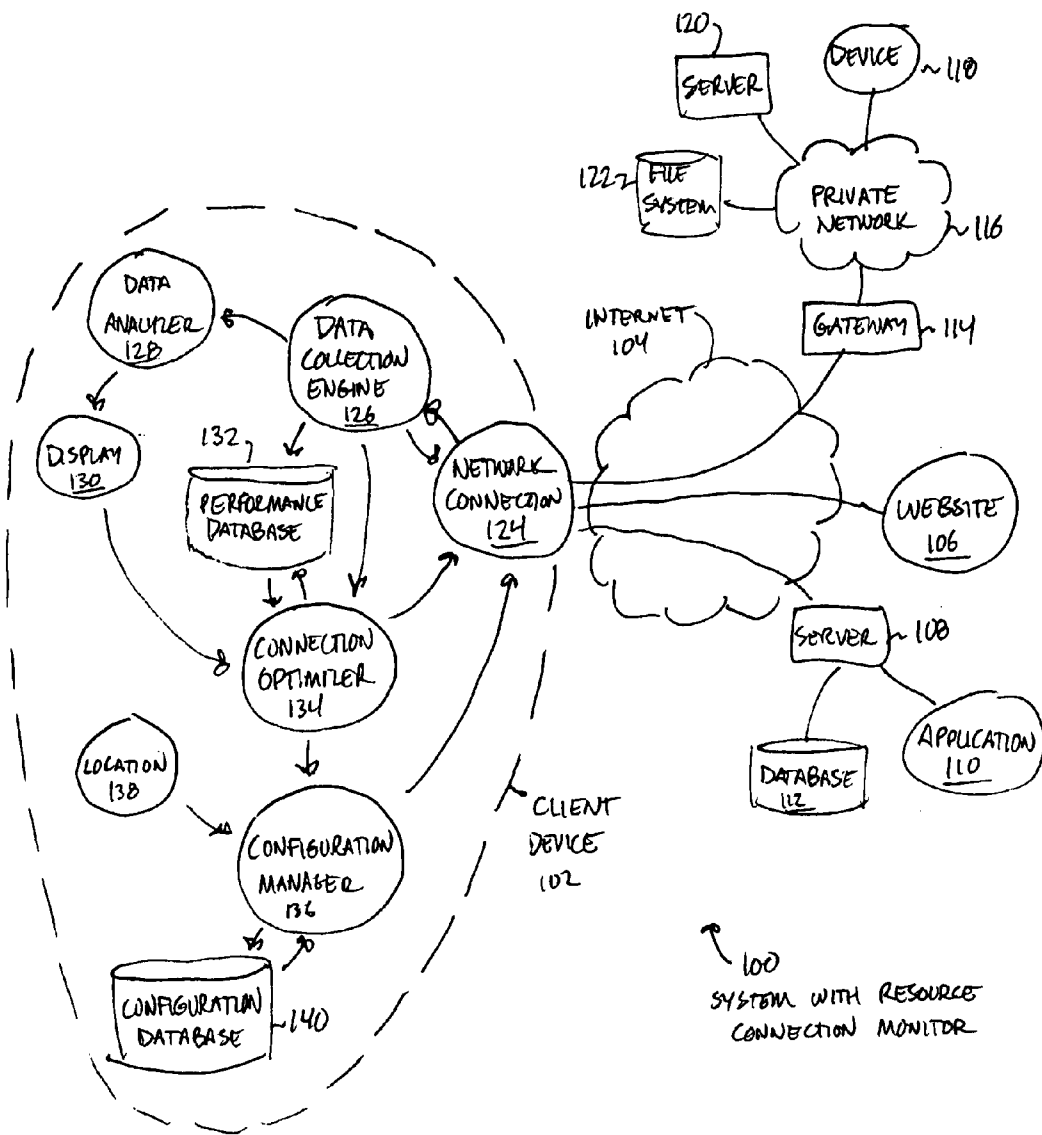 120
SERVER
DEVICE
118
122
FILE
SYSTEM
PRIVATE
NETWORK
116
GATEWAY
114
INTERNET
104
DATA
ANALYZER
128
DATA
COLLECTION
ENGINE
126
DISPLAY
130
132
PERFORMANCE
DATABASE
NETWORK
CONNECTION
124
WEBSITE
106
SERVER
108
CONNECTION
OPTIMIZER
134
APPLICATION
110
DATABASE
112
LOCATION
138
CLIENT
DEVICE
102
CONFIGURATION
MANAGER
136
CONFIGURATION
DATABASE
140
100
SYSTEM WITH RESOURCE
CONNECTION MONITOR